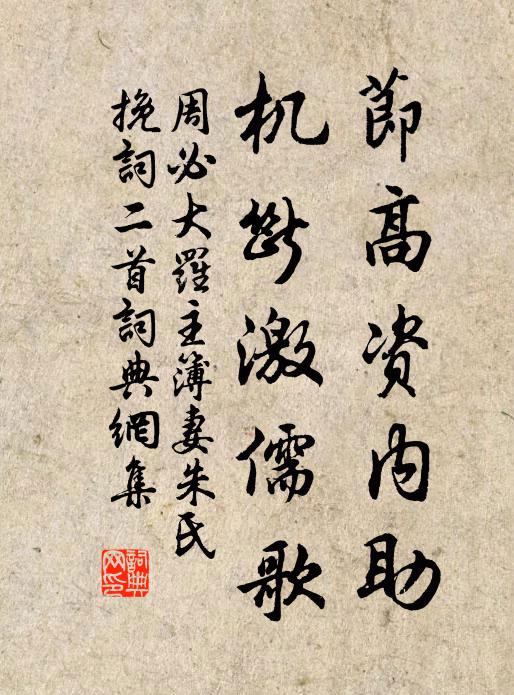 節高资内助
机断激儒歌
周必大羅主簿妻朱氏
挽詞二首詞典網集
詞典网印